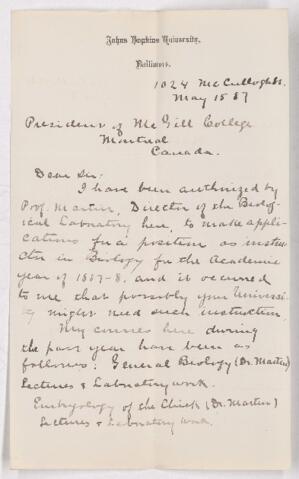 Johns Hopkins University,
Baltimore.
1024 McCulloh St.
May 15 87
President of McGill College
Montreal
Canada.
Dear Sir:
I have been authorized by
Prof. Martin, Director of the Biolog-
ical Laboratory here, to make appli-
cations for a position as instruc-
tor in Biology for the Academic
year of 1887-8, and it occurred
to me that possibly your Universi-
ty might need such instruction.
My courses here during
the past year have been as
follows: General Biology (Dr. Martin)
Lectures & Laboratory work.
Embryology of the Chick (Dr. Martin)
Lectures & Laboratory work.